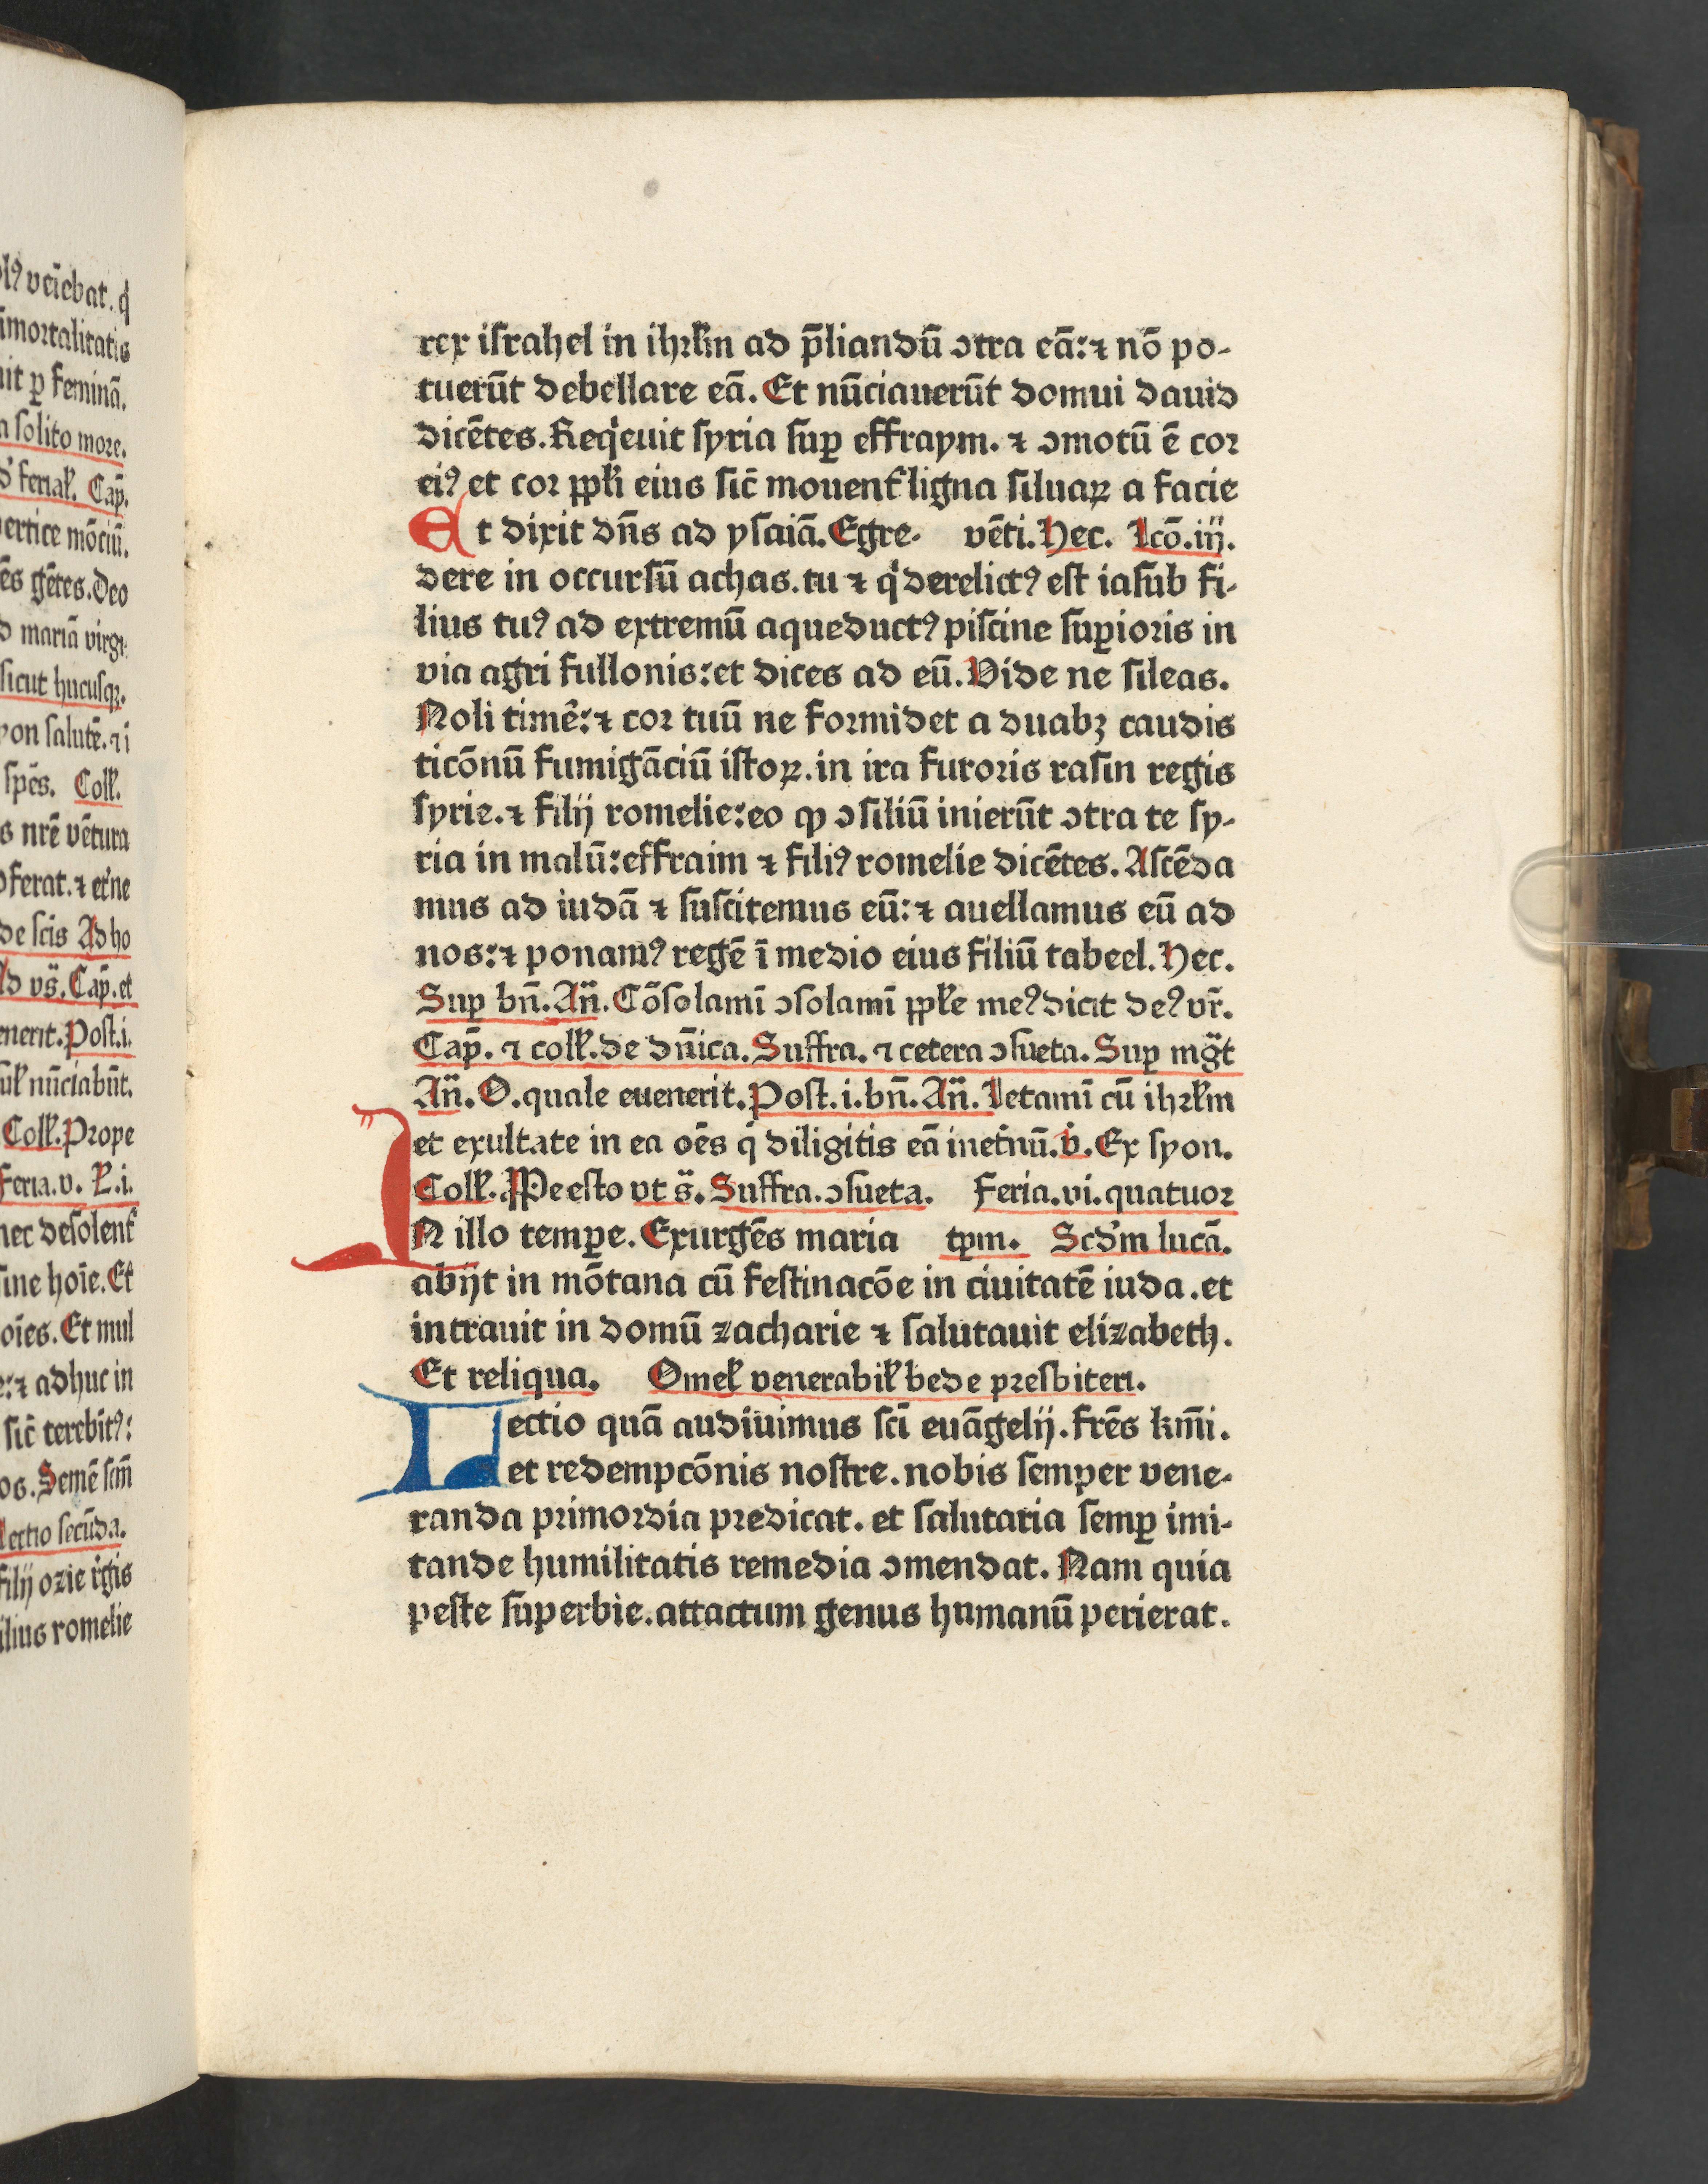 lꝰ vẽiebat. q̇
im̃ortalitatis
uit ꝑ feminã.
a solito more.
ferial̃. Cap̃.
ertice mõciũ.
ẽs gẽtes. Deo
d mariã virgi
sicut hucusqꝫ.
yon salutẽ. ⁊ i
spẽs. Coll̃.
s nrẽ vẽtura
ferat. ⁊ et'ne
de scĩs Ad ho
Ad vs̃. Cap̃. et
enerit. Post. i.
nũciabũt.
Coll̃. Prope
Feria. v. L̃. i.
nec desolent̃
sine hoĩe. Et
oĩes. Et mul
e: ⁊ adhuc in
sic̃ terebĩtꝰ:
os. Semẽ scm̃
Lectio secũda.
filij ozie rĩgis
filius romelie
rex iſrahel in ihrl̃m ad p̃liandũ ↄtra eã: ⁊ nõ po-
tuerũt debellare eã. Et nũciauerũt domui dauid
dicẽtes. Req̇euit ſyria ſuꝑ effraym. ⁊ ↄmotũ ẽ cor
eiꝰ et cor ppl̃i eius ſic̃ mouent̃ ligna ſiluaꝝ a facie
Et dixit dñs ad yſaiã. Egre- vẽti. Hec. Lcõ. iij.
dere in occurſũ achas. tu ⁊ q̇ derelictꝰ eſt iaſub fi-
lius tuꝰ ad extremũ aqueductꝰ piſcine ſuꝑioris in
via agri fullonis: et dices ad eũ. Vide ne ſileas.
Noli timẽ: ⁊ cor tuũ ne formidet a duabꝫ caudis
ticõnũ fumigãciũ iſtoꝝ. in ira furoris raſin regis
ſyrie. ⁊ filij romelie: eo ꝙ ↄſiliũ inierũt ↄtra te ſy-
ria in malũ: effraim ⁊ filiꝰ romelie dicẽtes. Aſcẽda
mus ad iudã ⁊ ſuſcitemus eũ: ⁊ auellamus eũ ad
nos: ⁊ ponamꝰ regẽ ĩ medio eius filiũ tabeel. Hec.
Suꝑ bñ. Añ. Cõſolamĩ ↄſolamĩ ppl̃e meꝰ dicit deꝰ vr̃.
Cap̃. ⁊ coll̃. de dñica. Suffra. ⁊ cetera ↄſueta. Suꝑ mg̃t
Añ. O. quale euenerit. Poſt. i. bñ. Añ. Letamĩ cũ ihrl̃m
et exultate in ea oẽs q̇ diligitis eã inet̃nũ. ꝟ. Ex ſyon.
Coll̃. Preeſto vt s̃. Suffra. ↄſueta. Feria. vi. quatuor
IN illo temꝑe. Exurgẽs maria tꝑm. Scd̃m lucã.
abijt in mõtana cũ feſtinacõe in ciuitatẽ iuda. et
intrauit in domũ zacharie ⁊ ſalutauit elizabeth.
Et reliqua. Omel̃ venerabil̃ bede preſbiteri.
Lectio quã audiuimus ſcĩ euãgelij. frẽs km̃i.
et redempcõnis noſtre. nobis ſemper vene-
randa primordia predicat. et ſalutaria ſemꝑ imi-
tande humilitatis remedia ↄmendat. Nam quia
peſte ſuperbie. attactum genus humanũ perierat.